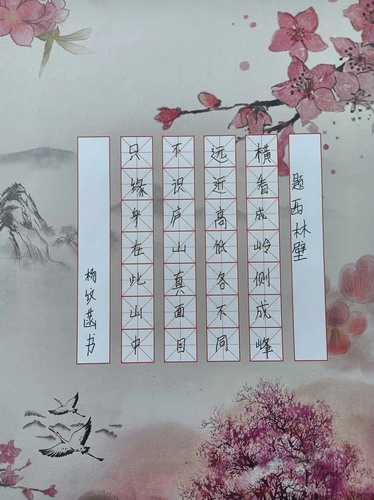 题西林壁
横看成岭侧成峰
远近高低各不同
不识庐山真面目
只缘身在此山中
杨纹菡书